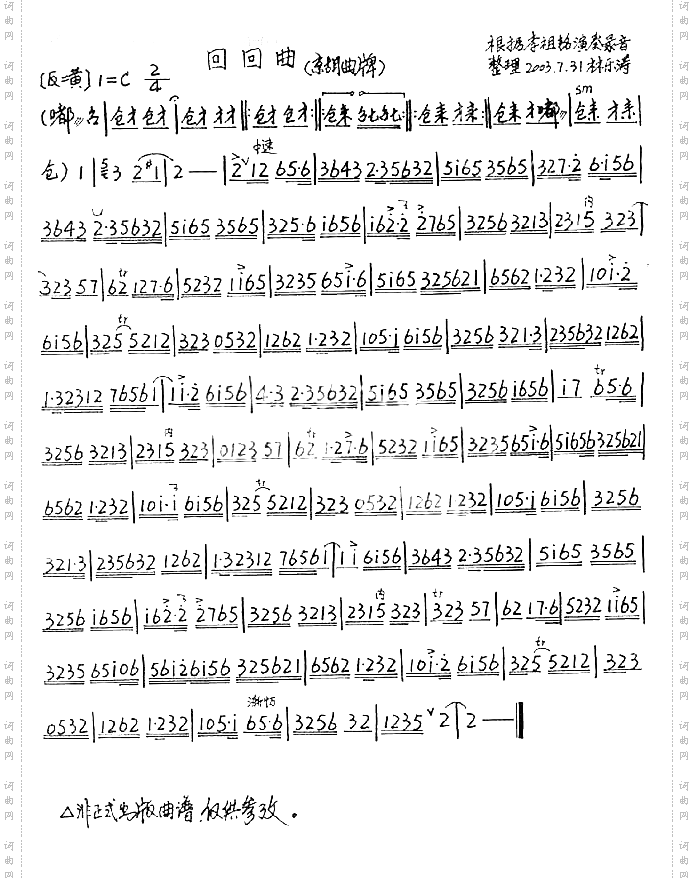 回回曲(京胡曲牌)
根据李祖铭演奏录音
整理 2003.7.31 林乐涛
〔反二黄〕1=C 2/4
(嘟 各|仓才 仓才|仓才 才才‖:仓才 仓才:‖仓来 七七:‖:仓来 才来:‖仓来 才嘟|仓来 才来|
sm
中速
仓)1|3 2#1|2 —|2 12 65·6|3643 2·35632|5165 3565|327·2 6·156|
3643 2·35632|5165 3565|325·6 1656|162·2 2765|3256 3213|2315 323|
内
323 57|62 127·6|5232 1165|3235 651·6|5165 325621|6562 1·232|101·2
tr
6156|325 5212|323 0532|1262 1·232|105·1 6156|3256 321·3|235632 1262|
tr
1·32312 76561|11·2 6156|4·3 2·35632|5165 3565|3256 1656|17 65·6|
tr
3256 3213|2315 323|0123 57|62 1·27·6|5232 1165|3235651·6|51656325621|
内 tr
6562 1·232|101·1 6156|325 5212|323 0532|1262 1232|105·1 6156|3256
tr
321·3|235632 1262|1·32312 76561|11 6156|3643 2·35632|5165 3565|
3256 1656|162·2 2765|3256 3213|2315 323|323 57|62 17·6|5232 1165|
内 tr
3235 65106|56126156 325621|6562 1·232|101·2 6156|325 5212|323
tr
渐慢
0532|1262 1·232|105·1 65·6|3256 32|1235 2|2 —‖
△非正式出版曲谱 仅供参考。
词曲网